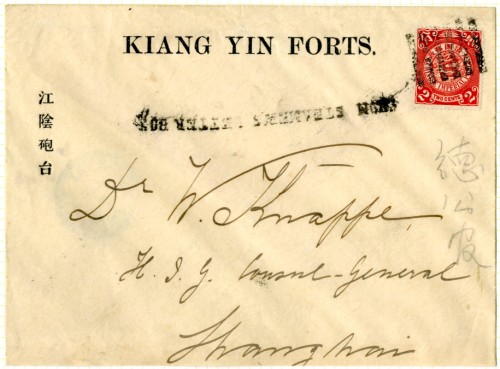 KIANG YIN FORTS.
江陰砲台
FROM STEAMER'S LETTER BOX
2 TWO CENTS. 2
Dr W. Knappe,
H. I. G. Consul-General
Shanghai
德公